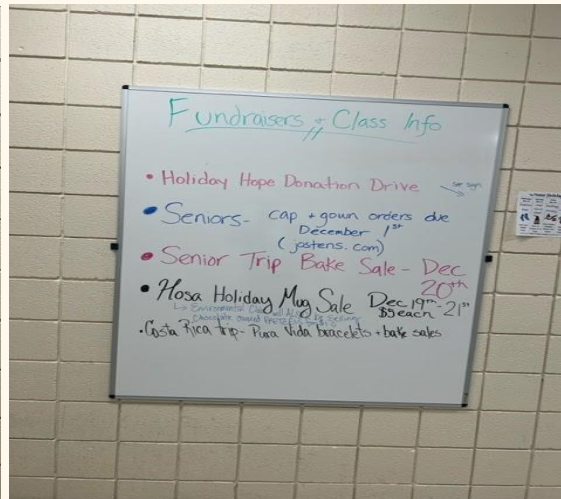 Fundraisers + Class Info
• Holiday Hope Donation Drive
see sign
• Seniors- cap + gown orders due
December 1st
(jostens.com)
• Senior Trip Bake Sale - Dec
20th
• Hosa Holiday Mug Sale Dec 19th - 21st
$5 each
↳ Environmental Club will ALSO be selling
Chocolate covered
• Costa Rica trip - Pura Vida bracelets + bake sales